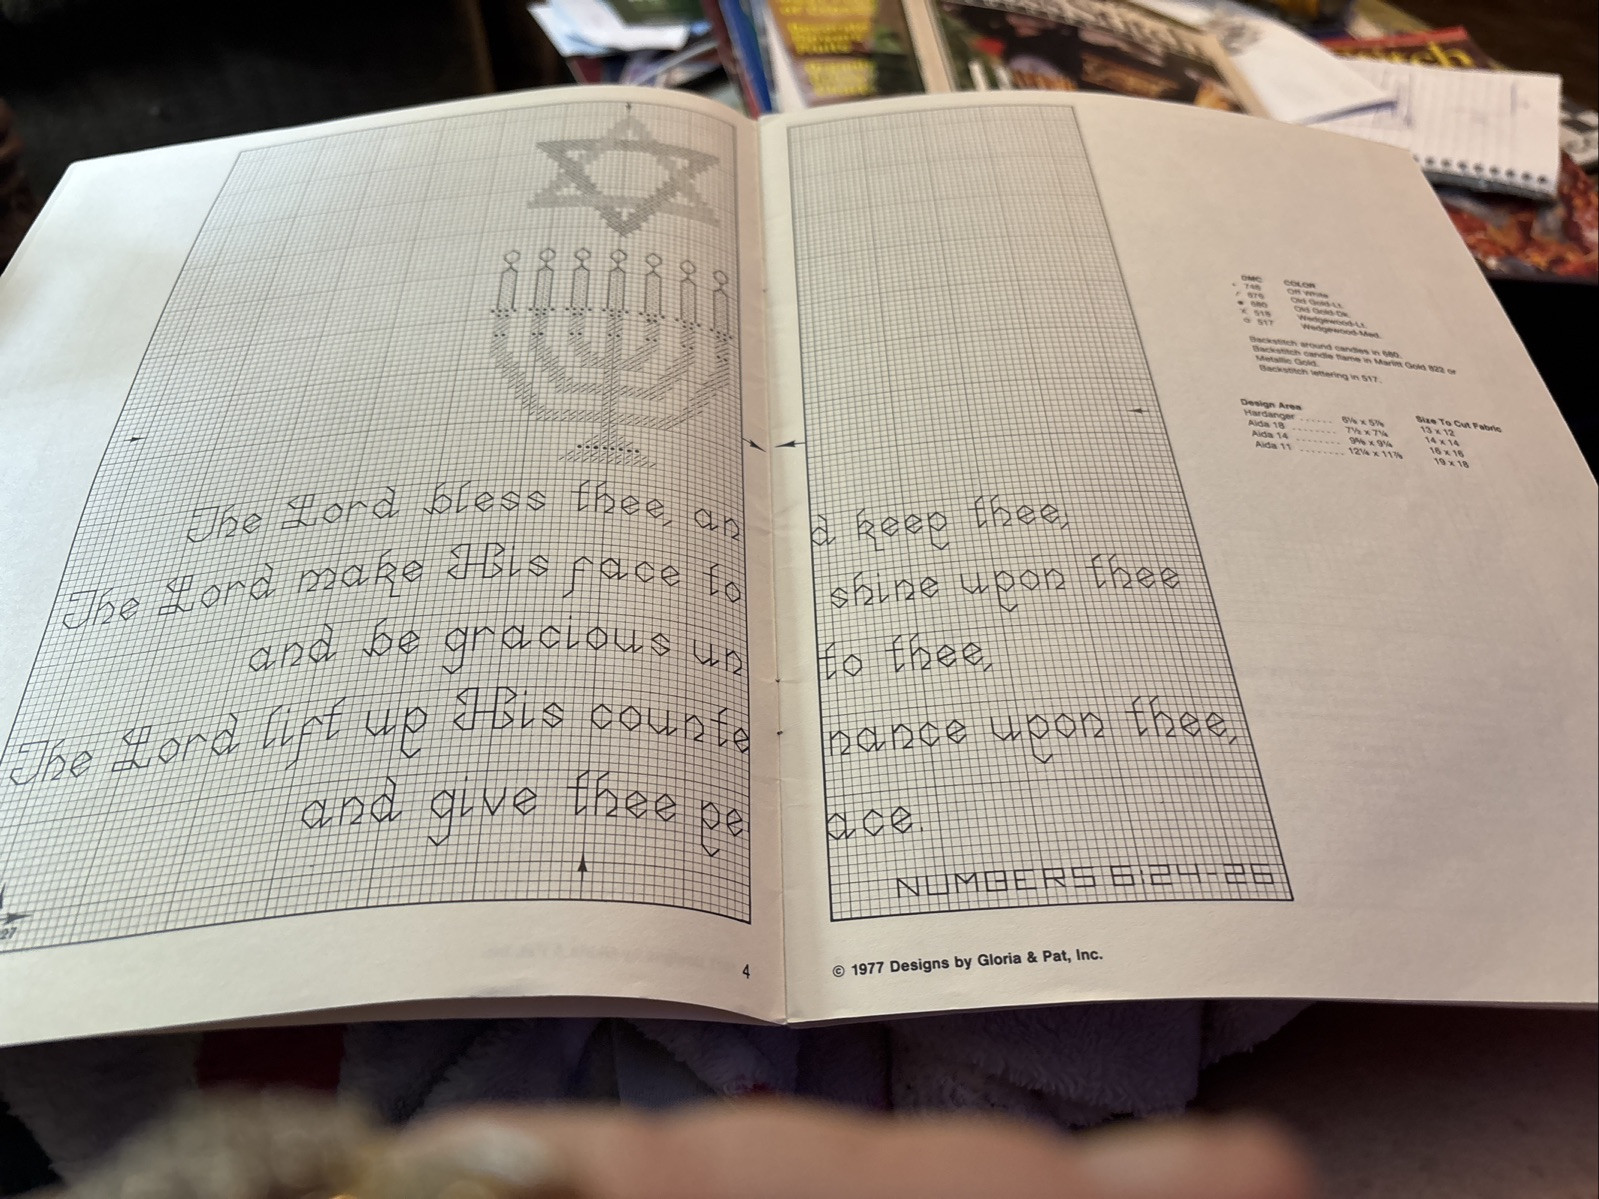 The Lord bless thee, and keep thee,
The Lord make His face to shine upon thee
and be gracious unto thee,
The Lord lift up His countenance upon thee,
and give thee peace.
NUMBERS 6:24-26
27
4
© 1977 Designs by Gloria & Pat, Inc.
DMC COLOR
Off White
676 Old Gold-Lt.
680 Old Gold-Dk.
518 Wedgewood-Lt.
517 Wedgewood-Med.
Backstitch around candles in 680.
Backstitch candle flame in Marlitt Gold 822 or
Metallic Gold.
Backstitch lettering in 517.
Design Area Size To Cut Fabric
Hardanger 13 x 12
Aida 18 14 x 14
Aida 14 16 x 16
Aida 11 19 x 18